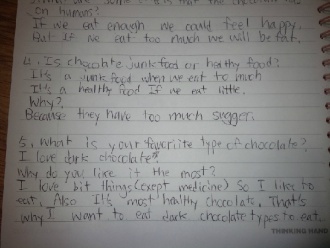 on humans?
If we eat enough we could feel happy.
But if we eat too much we will be fat.
4. Is chocolate junk food or healthy food?
It's a junk food when we eat to much
It's a healthy food If we eat little.
Why?
Because they have too much sugger.
5. What is your favorite type of chocolate?
I love dark chocolate
Why do you like it the most?
I love bit things (except medicine) So I likes to
eat. Also It's most healthy chocolate. That's
why I want to eat dark chocolate types to eat.
THINKING HAND